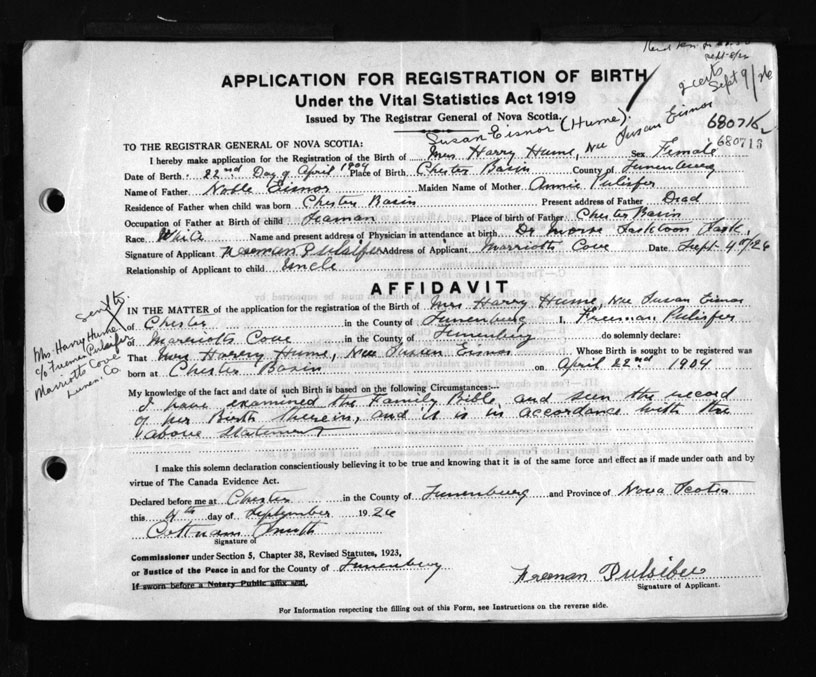 2 certs
Sept 9/26
APPLICATION FOR REGISTRATION OF BIRTH
Under the Vital Statistics Act 1919
Issued by The Registrar General of Nova Scotia.
Susan Eisnor (Hume).
680715
680713
TO THE REGISTRAR GENERAL OF NOVA SCOTIA:
I hereby make application for the Registration of the Birth of Mrs. Harry Hume, Nee Susan Eisnor Sex Female
Date of Birth 22nd Day of April 1904 Place of Birth Chester Basin County of Lunenburg
Name of Father Noble Eisnor Maiden Name of Mother Annie Pulsifer
Residence of Father when child was born Chester Basin Present address of Father Dead
Occupation of Father at Birth of child Seaman Place of birth of Father Chester Basin
Race White Name and present address of Physician in attendance at birth Dr Morse Saskatoon Sask.
Signature of Applicant Freeman Pulsifer Address of Applicant Marriotts Cove Date Sept 4th/26
Relationship of Applicant to child Uncle
AFFIDAVIT
IN THE MATTER of the application for the registration of the Birth of Mrs Harry Hume, Nee Susan Eisnor
of Chester in the County of Lunenburg I, Freeman Pulsifer
of Marriotts Cove in the County of Lunenburg do solemnly declare:
That Mrs Harry Hume, Nee Susan Eisnor Whose Birth is sought to be registered was
born at Chester Basin on April 22nd 1904
Mrs. Harry Hume
c/o Freeman Pulsifer
Marriotts Cove
Lunen. Co.
My knowledge of the fact and date of such Birth is based on the following Circumstances:—
I have examined the Family Bible, and seen the record
of her Birth therein, and it is in accordance with the
above statement
I make this solemn declaration conscientiously believing it to be true and knowing that it is of the same force and effect as if made under oath and by
virtue of The Canada Evidence Act.
Declared before me at Chester in the County of Lunenburg and Province of Nova Scotia
this 4th day of September 1926
Cottnam Smith
Signature of
Commissioner under Section 5, Chapter 38, Revised Statutes, 1923,
or Justice of the Peace in and for the County of Lunenburg
If sworn before a Notary Public affix seal.
Freeman Pulsifer
Signature of Applicant.
For Information respecting the filling out of this Form, see Instructions on the reverse side.